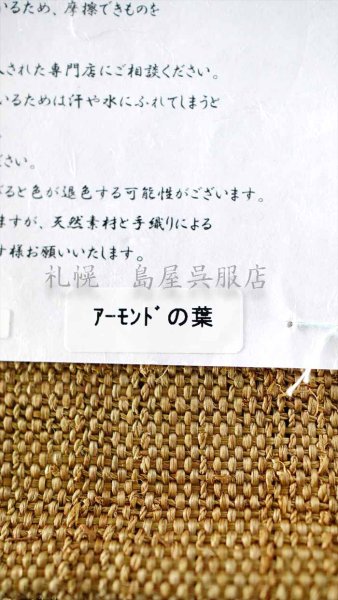 いるため、摩擦できものを
入された専門店にご相談ください。
いるためは汗や水にふれてしまうと
ださい。
がると色が退色する可能性がございます。
ますが、天然素材と手織りによる
す様お願いいたします。
札幌 島屋呉服店
ｱｰﾓﾝﾄﾞの葉